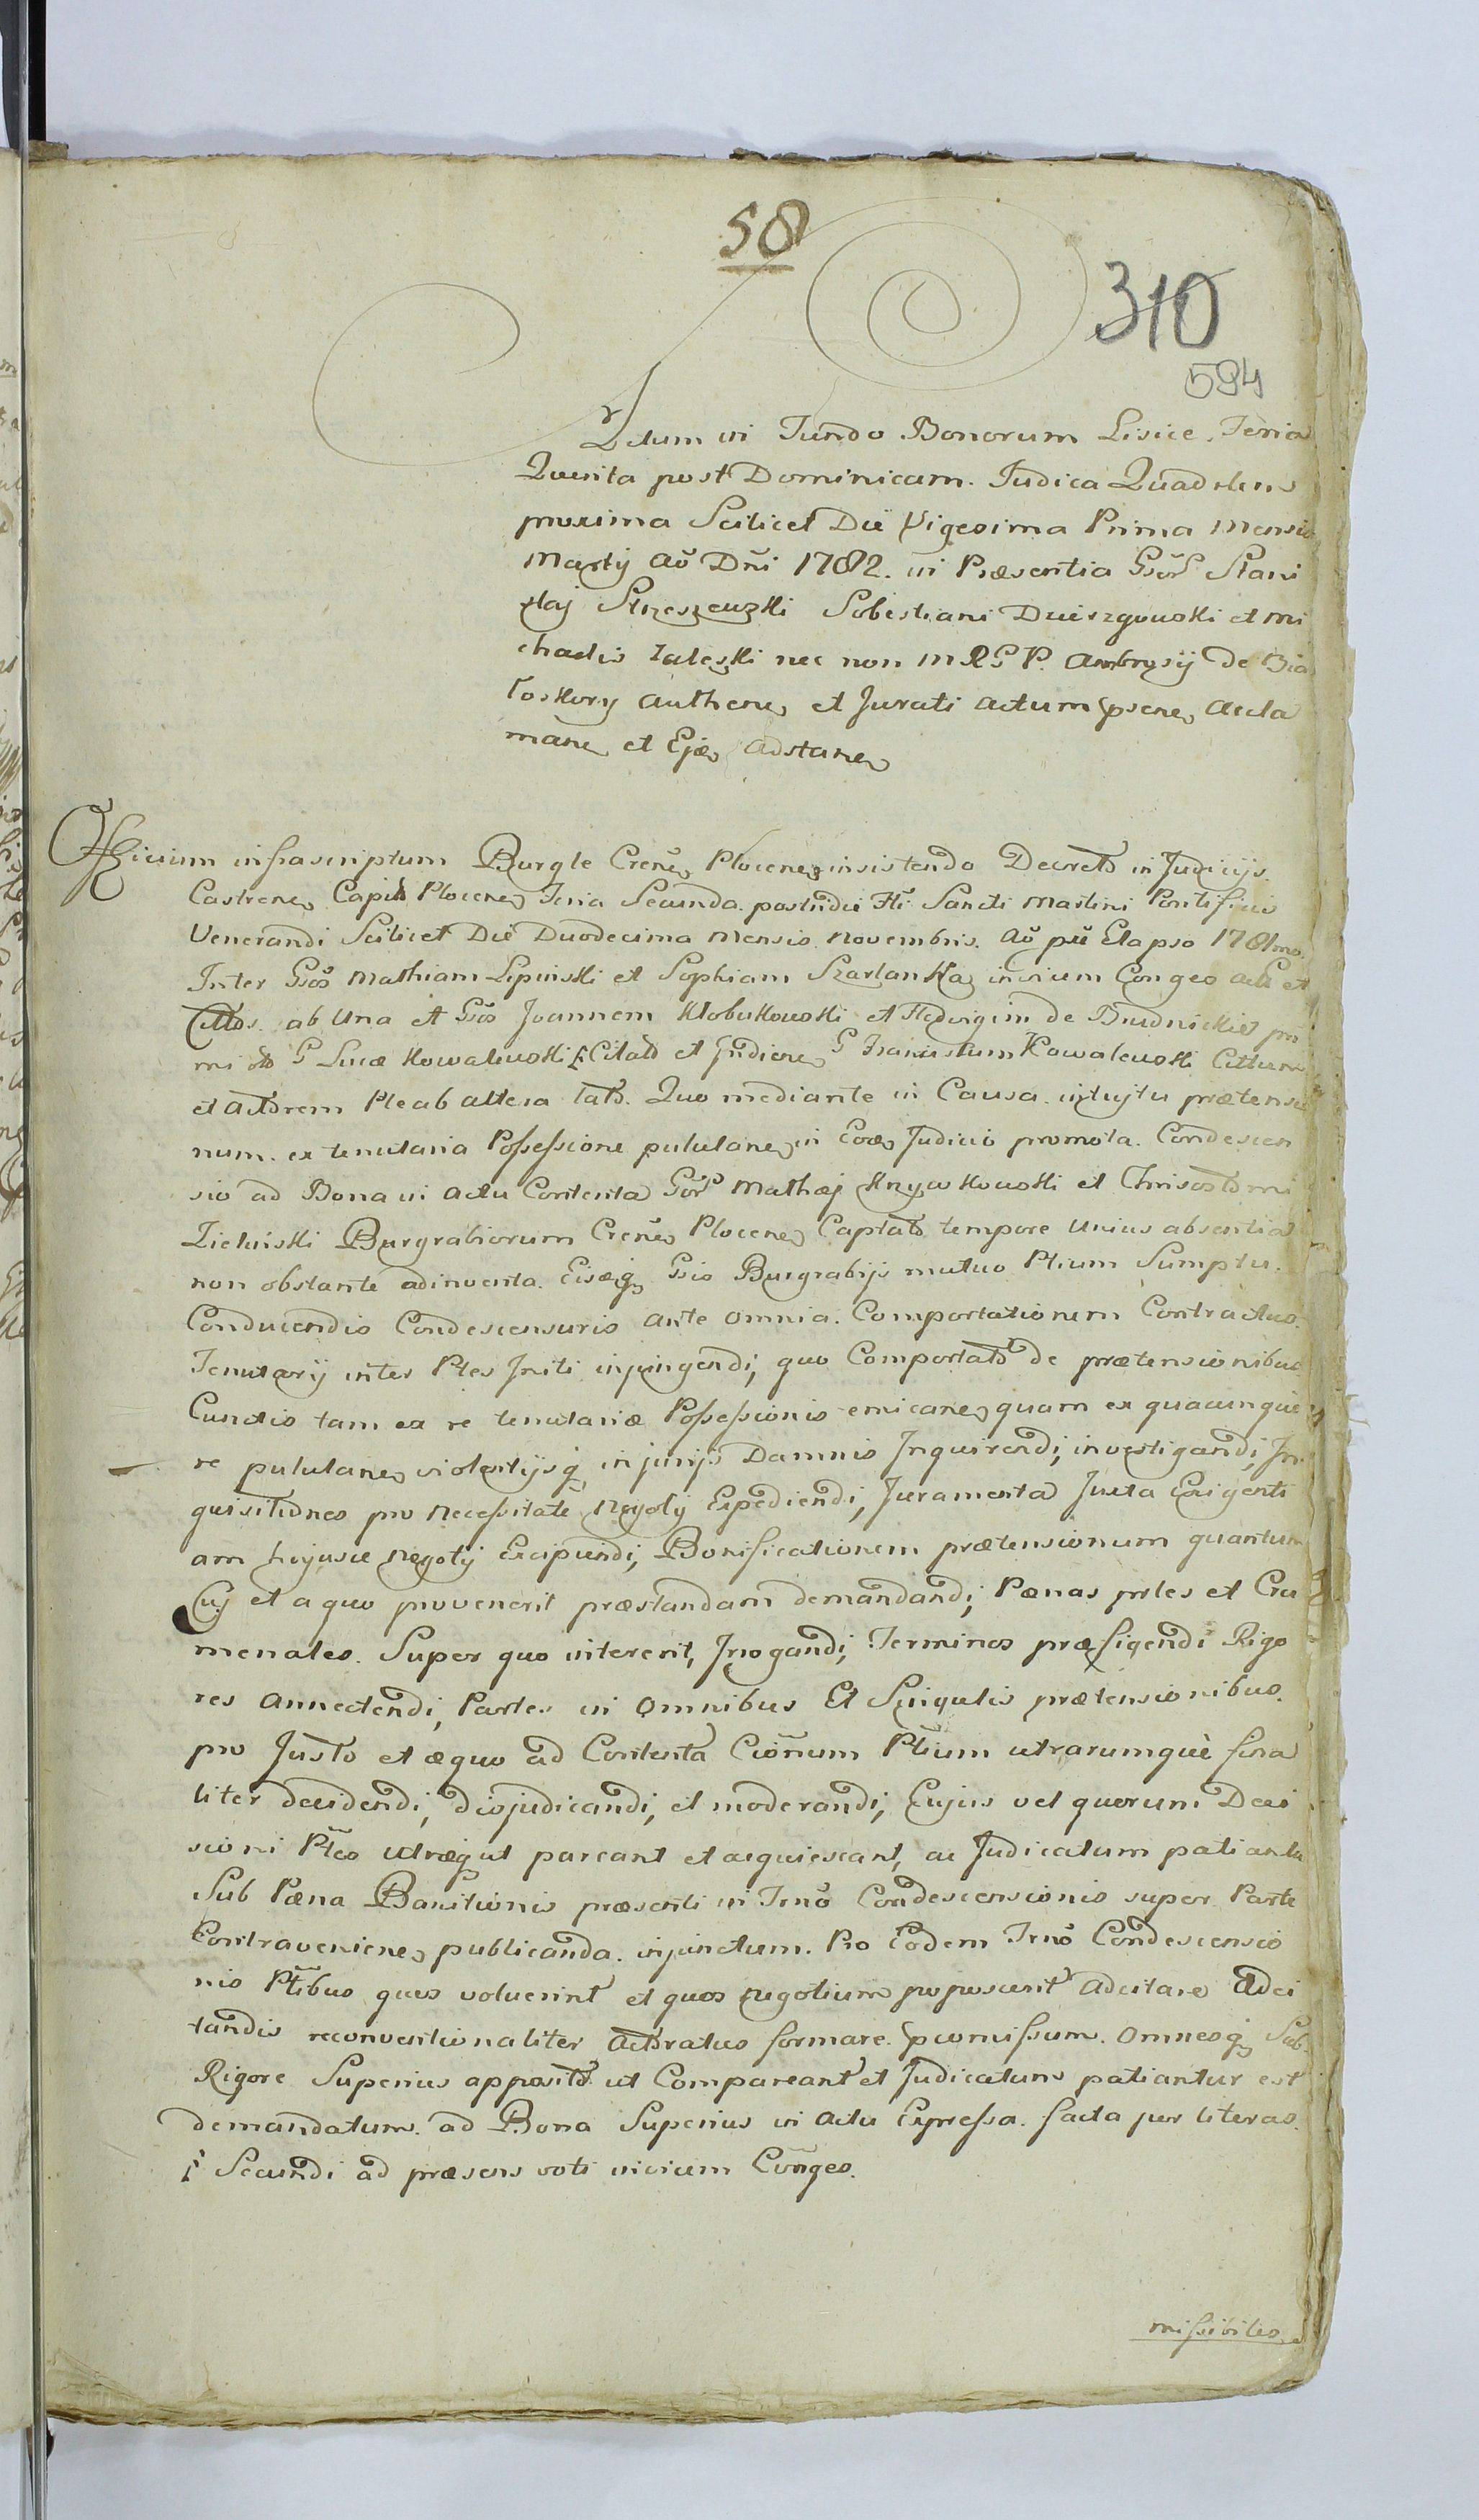 58
310
594
Actum in Fundo Bonorum Lisice, Feria
Quinta post Dominicam Judica Quadrlem
proxima Scilicet Die Vigesima Prima Mensis
Martij Aõ Dñi 1782. in Præsentia Gsor Stani
slaj Strzeszewski Sebestiani Dzierzgowski et Mi
chaelis Zaleski nec non M R G P. Ambrosij de Bia
łoskory Authen et Jurati Actum psen Accla
man et Ejæ Adstan
Officium infrascriptum Burgle Cren Plocen insistendo Decreto in Judicijs
Castren Capit Plocen Feria Secunda postridie Fti Sancti Martini Pontificis
Venerandi Scilicet Die Duodecima Mensis Novembris. Aõ pñ Elapso 1781mo.
Inter Gsos Mathiam Lipinski et Sophiam Szarlanka invicem Conges Acts et
Cittos. ab Una et Gsos Joannem Kłobukowski et Hedvigim de Budnickie pri
mi oto G Lucæ Kowalewski Citato et Judicen G Franciscum Kowalewski Cittum
et Actorem Ple ab altera tato. Quo mediante in Causa. intuytu prætensio
num. ex tenutaria Possessione pululane in Eoe Judicio promota. Condescen
sio ad Bona in Actu Contenta Gsor Mathæj Krzywkowski et Chrisostomi
Zieliński Burgrabiorum Cren Plocen Captato tempore Unius absentia
non obstante adinventa. Eisq Gsis Burgrabijs mutuo Ptium Sumptu.
Conducendis Condescensuris ante omnia. Comportationem Contractus.
Tenutarij inter Ptes Initi injungendi, quo Comportato de prætensionibus
Cunctis tam ex re tenutariæ Possessionis emicane quam ex quacumque
re pululane violentijsq injurijs Damnis Inquirendi, investigandi, In
quisitiones pro Necessitate Negotij Expediendi, Juramenta Juxta Exigenti
am hujusce Negotij Excipiendi, Bonificationem prætensionum quantum
Cuj et a quo provenerit præstandam demandandi; Pænas prles et Cru
menales. Super quo intererit, Irrogandi, Terminos præfigendi Rigo
res Annectendi, Partes in Omnibus Et Singulis prætensionibus.
pro Justo et æquo ad Contenta Cionum Ptium utrarumque fina
liter decidendi, disjudicandi, et moderandi, Cujus vel quorum Deci
sioni Ptes utræq ut pareant et acquiescant, ac Judicatum patiantu
Sub Pæna Banitionis præsenti in Trno Condescensionis super Parte
Contraveniene publicanda. injunctum. Pro Eodem Trno Condescensio
nis Ptibus quos voluerint et quos negotium poposcerit Adcitare Adci
tandis reconventionaliter Actoratus formare. pcomissum. Omnesq Sub.
Rigore Superius apposito ut Compareant et Judicatum patiantur est
demandatum. ad Bona Superius in Actu Expressa. facta per literas.
Secundi ad præsens voti invicem Conges.
missibiles